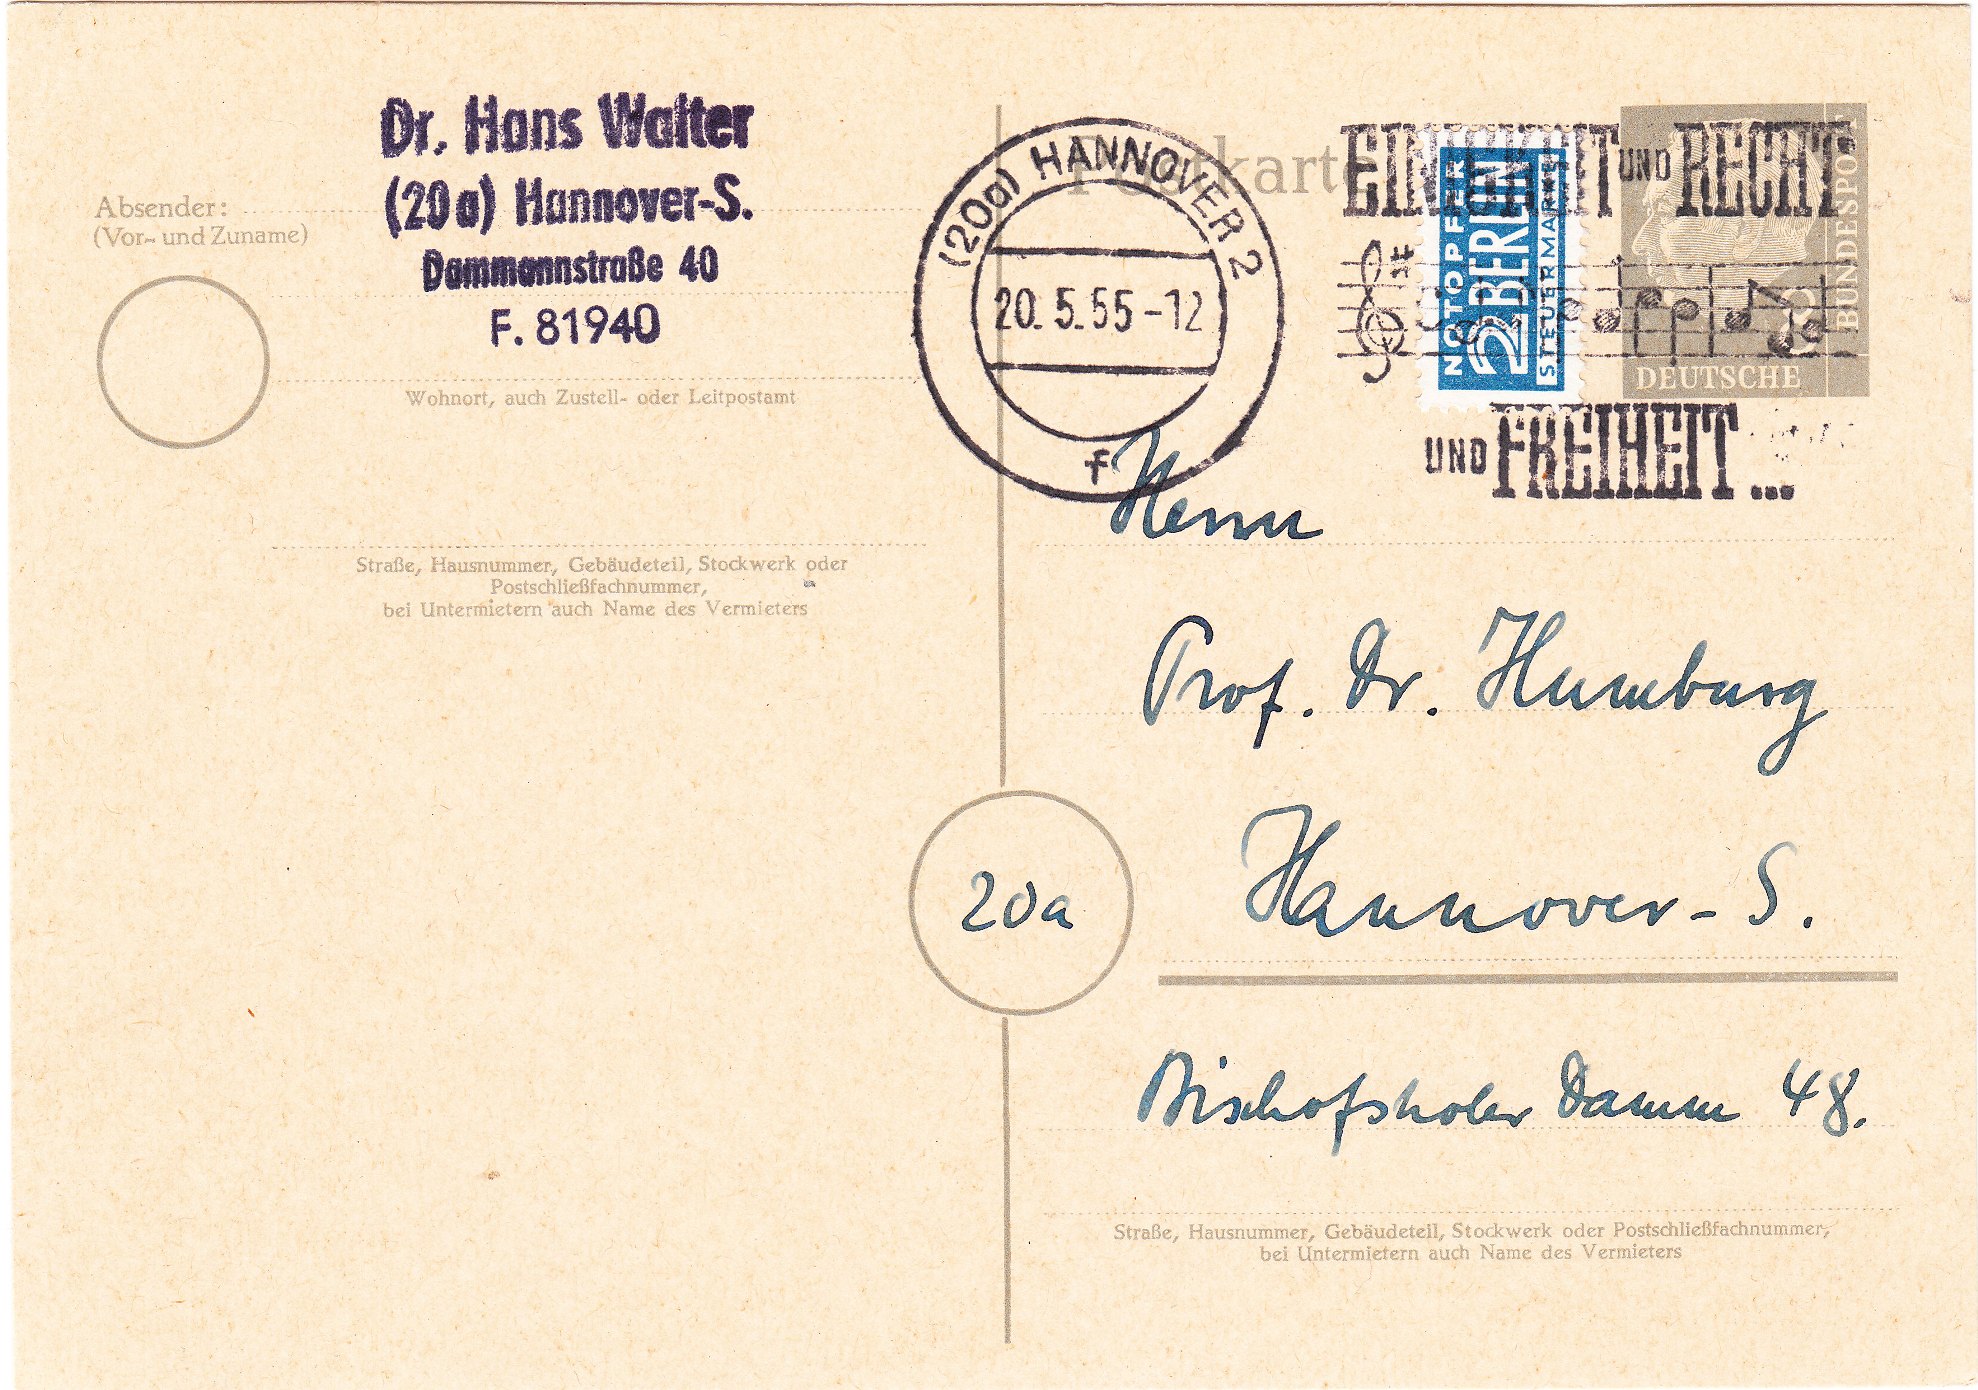 Dr. Hans Walter
(20a) Hannover-S.
Dammannstraße 40
F. 81940
Absender:
(Vor- und Zuname)
Wohnort, auch Zustell- oder Leitpostamt
Straße, Hausnummer, Gebäudeteil, Stockwerk oder
Postschließfachnummer,
bei Untermietern auch Name des Vermieters
Postkarte
(20a) HANNOVER 2
20.5.55-12
f
EINIGKEIT UND RECHT
UND FREIHEIT...
NOTOPFER
2 BERLIN
STEUERMARKE
DEUTSCHE
BUNDESPOST
8
Herrn
Prof. Dr. Humburg
20a
Hannover-S.
Bischofsholer Damm 48.
Straße, Hausnummer, Gebäudeteil, Stockwerk oder Postschließfachnummer,
bei Untermietern auch Name des Vermieters